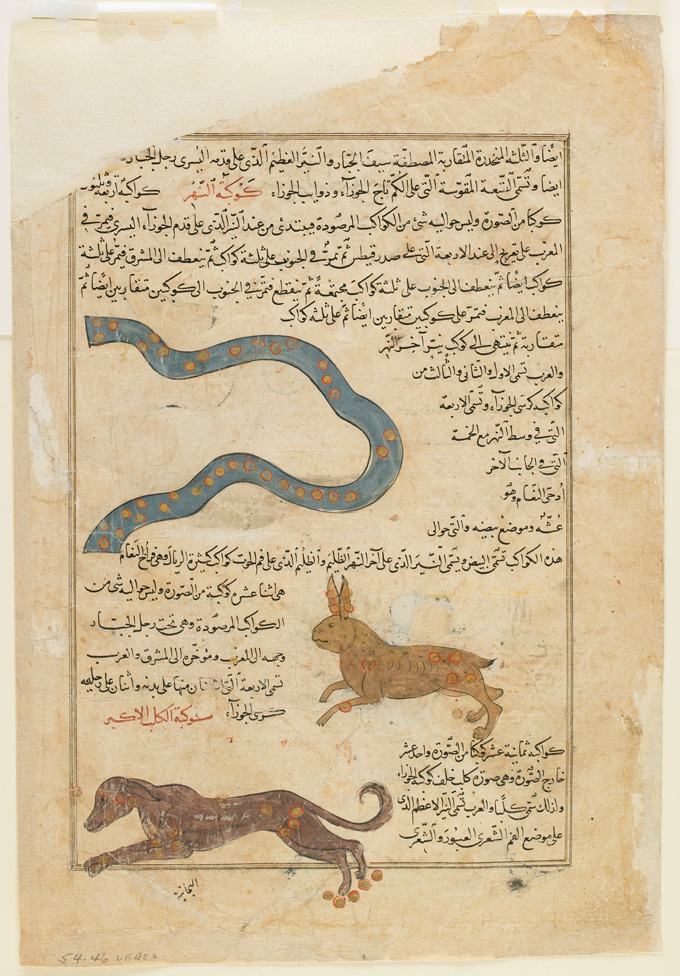 ايضا والثلثة المنحدرة المتقاربة المصطفة سيف الجبار والنير العظيم الذى على قدمه اليسرى رجل
ايضا وتسمى التسعة المقوسة التى على الكم تاج الجوزآء وذوايب الجوزآء كوكبة النهر كواكبه اربعة وثلثون
كوكبا من الصورة وليس حواليه شئ من الكواكب المرصودة يبتدئ من عند النير الذى على قدم الجوزآء اليسرى فيمر فى
المغرب على تعريج الى عند الاربعة التى على صدر قيطس ثم يمر فى الجنوب على ثلثة كواكب ثم ينعطف الى المشرق فيمر على ثلثة
كواكب ايضا ثم ينعطف الى الجنوب على ثلثة كواكب مجتمعة ثم ينقطع فيمر فى الجنوب الى كوكبين متقاربين ايضا ثم
ينعطف الى المغرب فيمر على كوكبين متقاربين ايضا ثم على ثلثة كواكب
متقاربة ثم ينتهى الى كوكب نير آخر النهر
والعرب تسمى الاول والثانى والثالث من
كواكبه كرسى الجوزآء وتسمى الاربعة
التى فى وسط النهر مع الخمسة
التى فى الجانب الآخر
أدحى النعام وهو
عشه وموضع بيضه والتى حوالى
هذه الكواكب تسمى البيض ويسمى النير الذى على آخر النهر الظليم والظليم الذى على فم الحوت كواكب كثيرة الرئال وهى فراخ النعام
هى اثنا عشر كوكبة من الصورة وليس حواليه شئ من
الكواكب المرصودة وهى تحت رجل الجبار
وجهه الى المغرب ومؤخره الى المشرق والعرب
تسمى الاربعة التى اثنان منها على بدنه واثنان على رجليه
كرسى الجوزآء كوكبة الكلب الاكبر
كواكبه ثمانية عشر كوكبا من الصورة واحد عشر
خارج الصورة وهى صورة كلب خلف كوكبة الجوزاء
ولذلك سمى كلبا والعرب تسمى النير الاعظم الذى
على موضع الفم الشعرى العبور والشعرى
اليمانية
54.46 VERSO